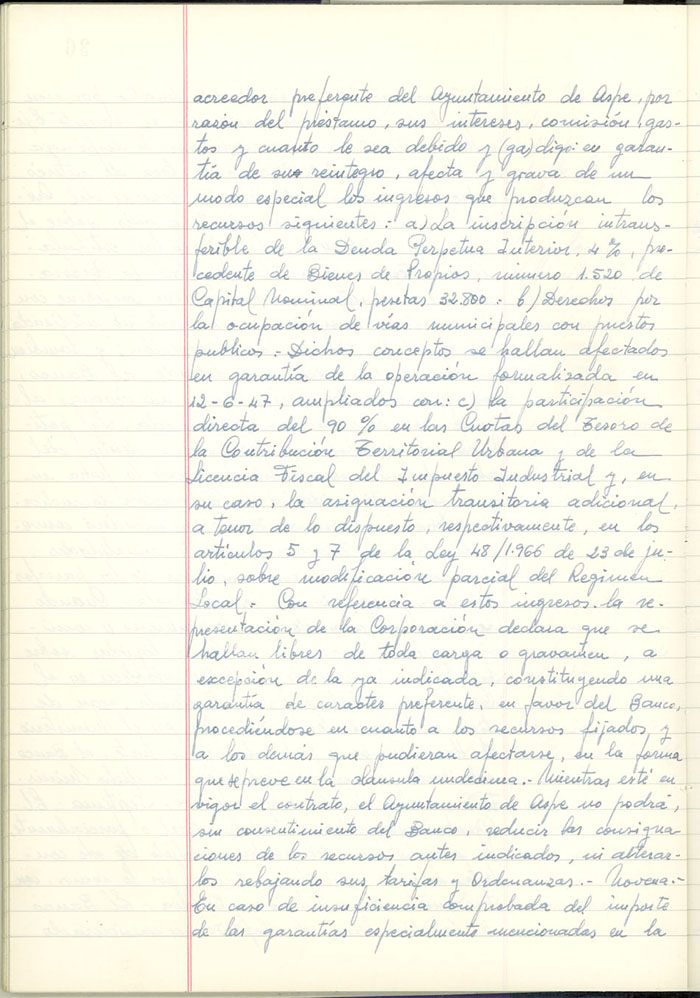 acreedor preferente del Ayuntamiento de Aspe, por
razón del préstamo, sus intereses, comisión, gas-
tos y cuanto le sea debido y (ga) digo: en garan-
tía de su reintegro, afecta y grava de un
modo especial los ingresos que produzcan los
recursos siguientes: a) La inscripción intrans-
ferible de la Deuda Perpetua Interior, 4%, pro-
cedente de Bienes de Propios, número 1.520 de
Capital Nominal, pesetas 32.800.- b) Derechos por
la ocupación de vías municipales con puestos
publicos.- Dichos conceptos se hallan afectados
en garantía de la operación formalizada en
12-6-47, ampliados con: c) la participación
directa del 90 % en las Cuotas del Tesoro de
la Contribución Territorial Urbana y de la
Licencia Fiscal del Impuesto Industrial y, en
su caso, la asignación transitoria adicional,
a tenor de lo dispuesto, respectivamente, en los
artículos 5 y 7 de la Ley 48/1.966 de 23 de ju-
lio, sobre modificación parcial del Regimen
Local.- Con referencia a estos ingresos la re-
presentación de la Corporación declara que se
hallan libres de toda carga o gravamen, a
excepción de la ya indicada, constituyendo una
garantía de caracter preferente, en favor del Banco,
procediéndose en cuanto a los recursos fijados y
a los demás que pudieran afectarse, en la forma
que se preve en la clausula undecima.- Mientras esté en
vigor el contrato, el Ayuntamiento de Aspe no podrá,
sin consentimiento del Banco, reducir las consigna
ciones de los recursos antes indicados, ni alterar-
los rebajando sus tarifas y Ordenanzas.- Novena.-
En caso de insuficiencia comprobada del importe
de las garantías especialmente mencionadas en la